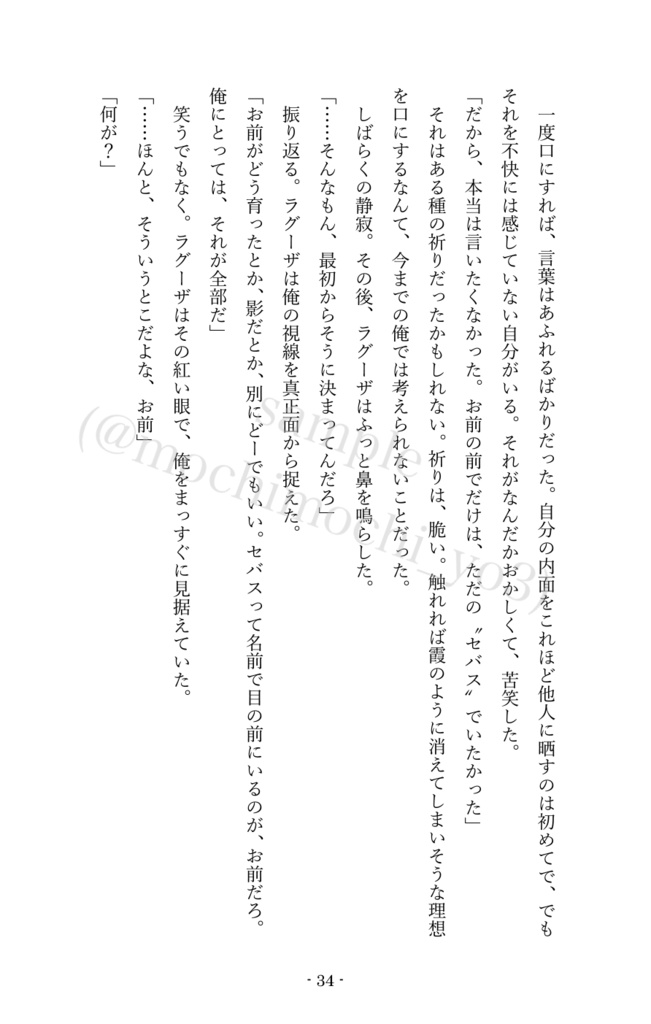 一度口にすれば、言葉はあふれるばかりだった。自分の内面をこれほど他人に晒すのは初めてで、でも
それを不快には感じていない自分がいる。それがなんだかおかしくて、苦笑した。
「だから、本当は言いたくなかった。お前の前でだけは、ただの〝セバス〟でいたかった」
　それはある種の祈りだったかもしれない。祈りは、脆い。触れれば霞のように消えてしまいそうな理想
を口にするなんて、今までの俺では考えられないことだった。
　しばらくの静寂。その後、ラグーザはふっと鼻を鳴らした。
「……そんなもん、最初からそうに決まってんだろ」
　振り返る。ラグーザは俺の視線を真正面から捉えた。
「お前がどう育ったとか、影だとか、別にどーでもいい。セバスって名前で目の前にいるのが、お前だろ。
俺にとっては、それが全部だ」
　笑うでもなく。ラグーザはその紅い眼で、俺をまっすぐに見据えていた。
「……ほんと、そういうとこだよな、お前」
「何が？」
sample
(@mochimochi_yo3)
- 34 -